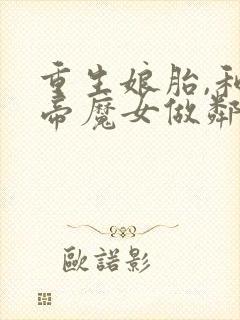 重生娘胎,和
帝魔女做鄰
歐諾影